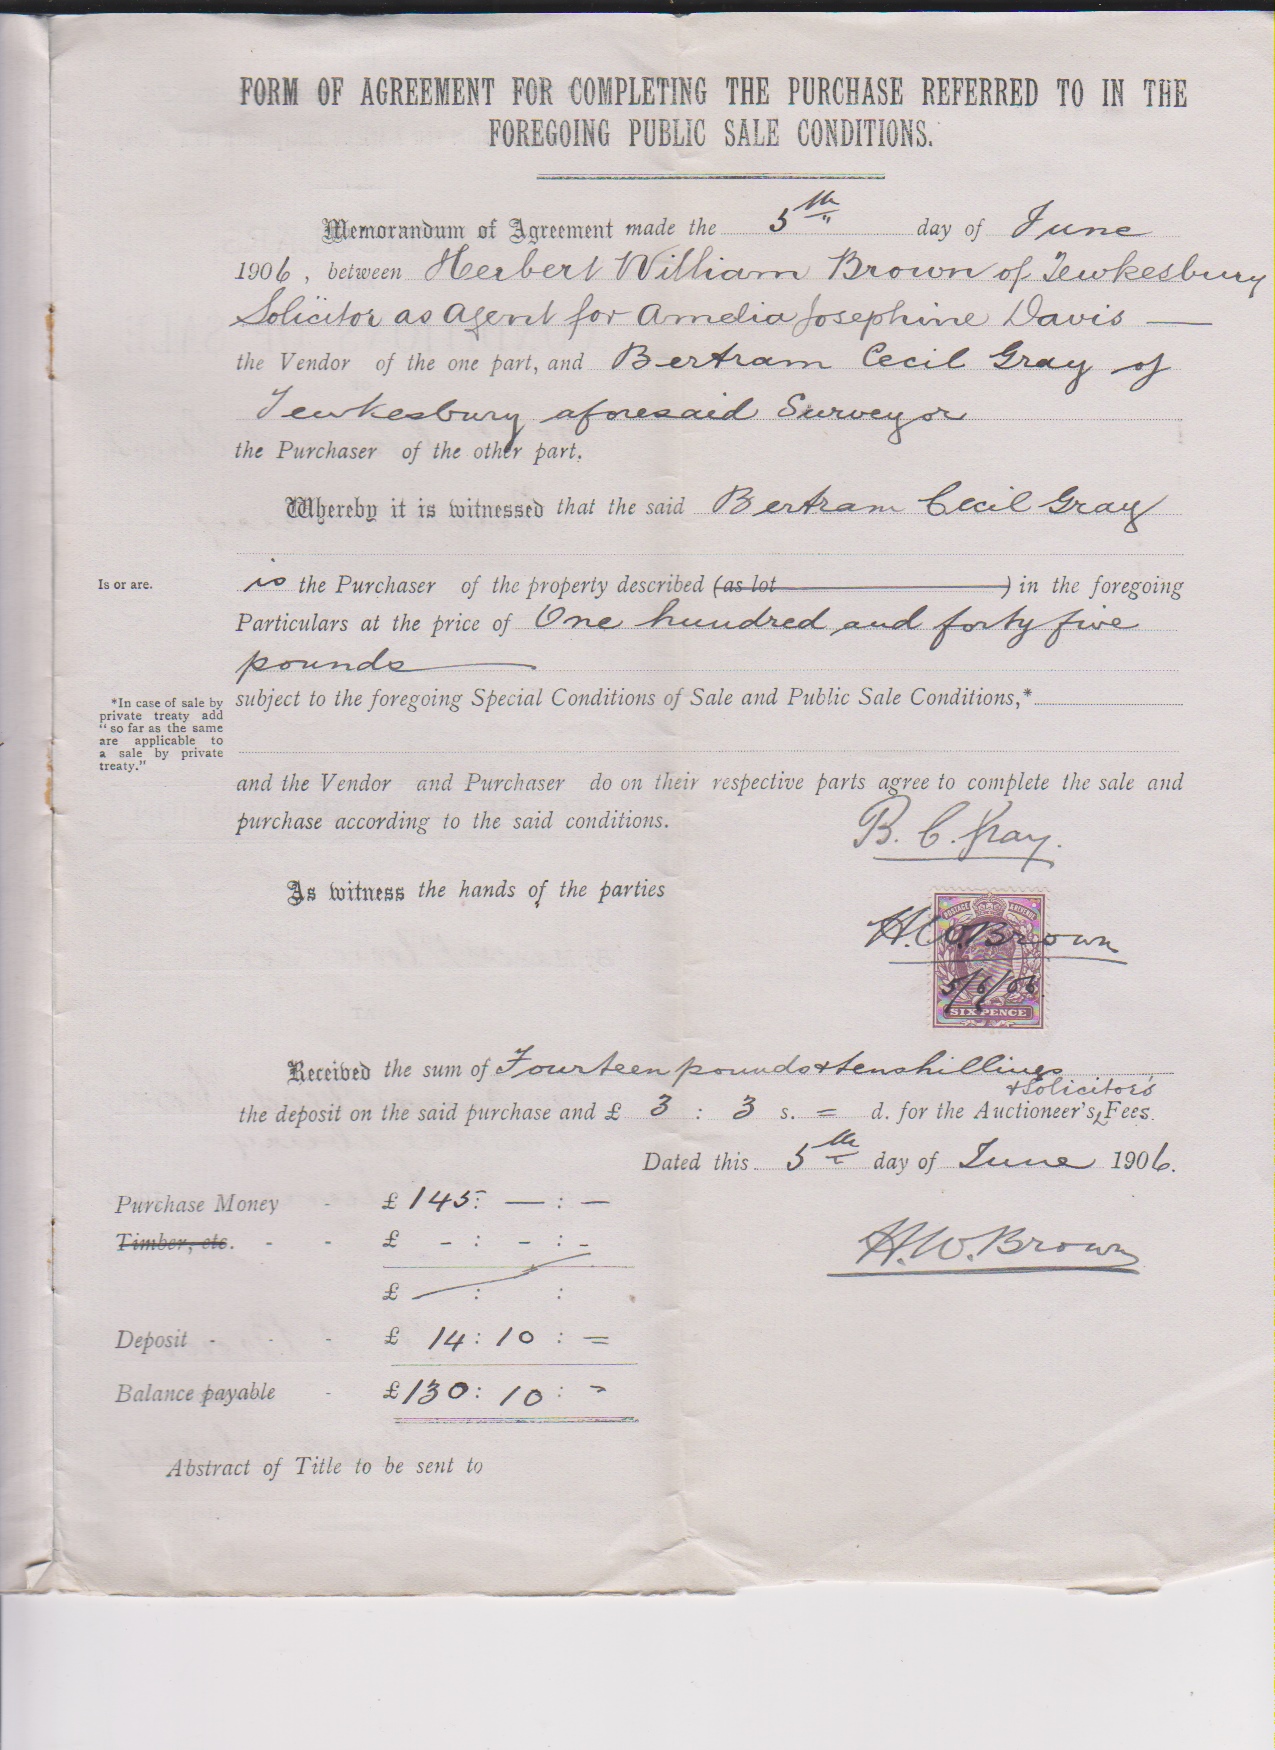 FORM OF AGREEMENT FOR COMPLETING THE PURCHASE REFERRED TO IN THE
FOREGOING PUBLIC SALE CONDITIONS.
Memorandum of Agreement made the 5th day of June
1906, between Herbert William Brown of Tewkesbury
Solicitor as Agent for Amelia Josephine Davis —
the Vendor of the one part, and Bertram Cecil Gray of
Tewkesbury aforesaid Surveyor
the Purchaser of the other part.
Whereby it is witnessed that the said Bertram Cecil Gray
Is or are.
is the Purchaser of the property described (as lot ) in the foregoing
Particulars at the price of One hundred and forty five
pounds —
subject to the foregoing Special Conditions of Sale and Public Sale Conditions,*
*In case of sale by
private treaty add
"so far as the same
are applicable to
a sale by private
treaty."
and the Vendor and Purchaser do on their respective parts agree to complete the sale and
purchase according to the said conditions.
B. C. Gray.
As witness the hands of the parties
POSTAGE & REVENUE
H. W. Brown
5/6/06
SIX PENCE
Received the sum of Fourteen pounds & ten shillings
& Solicitor's
the deposit on the said purchase and £ 3 : 3 s. = d. for the Auctioneer's Fees.
Dated this 5th day of June 1906.
Purchase Money - £ 145 : — : —
Timber, etc. - - £ - : - : -
£ — : :
H. W. Brown
Deposit - - - £ 14 : 10 : =
Balance payable - £ 130 : 10 : -
Abstract of Title to be sent to